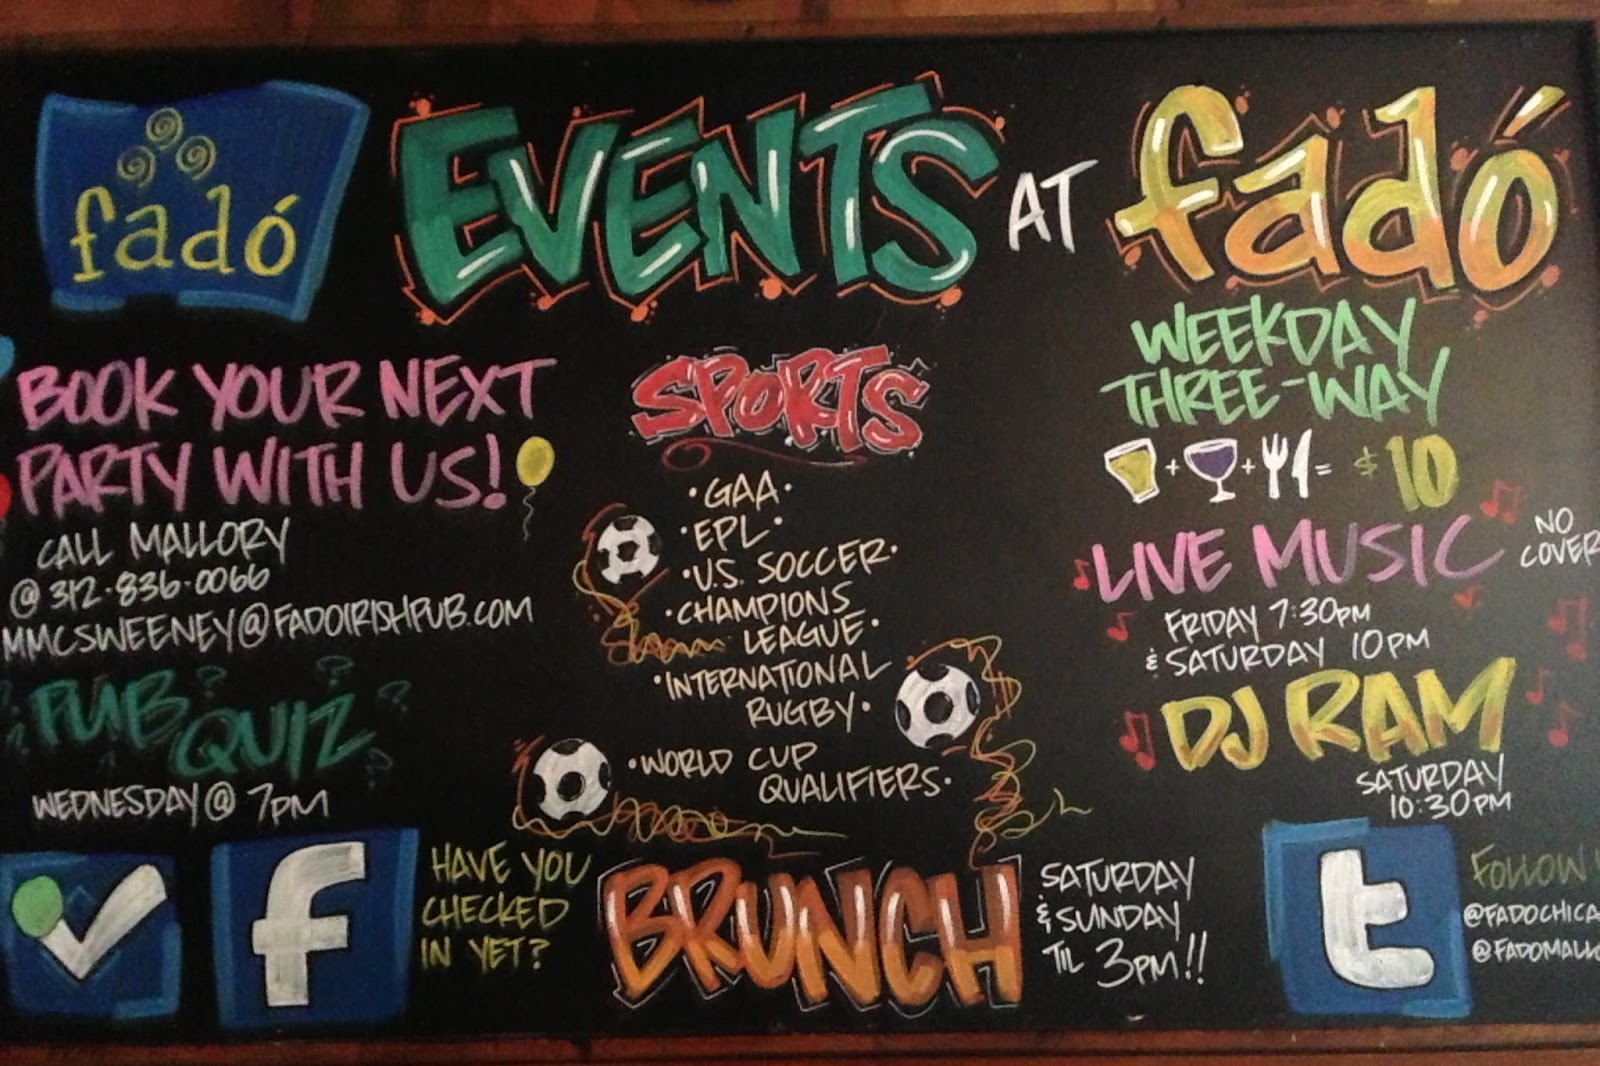 fadó
EVENTS AT fadó
BOOK YOUR NEXT
PARTY WITH US!
CALL MALLORY
@ 312-836-0066
MMCSWEENEY@FADOIRISHPUB.COM
PUB
QUIZ
WEDNESDAY @ 7PM
SPORTS
• GAA •
• EPL •
• U.S. SOCCER •
• CHAMPIONS
LEAGUE •
• INTERNATIONAL
RUGBY •
• WORLD CUP
QUALIFIERS •
WEEKDAY
THREE-WAY
+ + = $10
LIVE MUSIC
NO
COVER
FRIDAY 7:30PM
& SATURDAY 10PM
DJ RAM
SATURDAY
10:30PM
f
HAVE YOU
CHECKED
IN YET?
BRUNCH
SATURDAY
& SUNDAY
TIL 3PM!!
t
FOLLOW
@FADOCHICA
@FADOMALLO